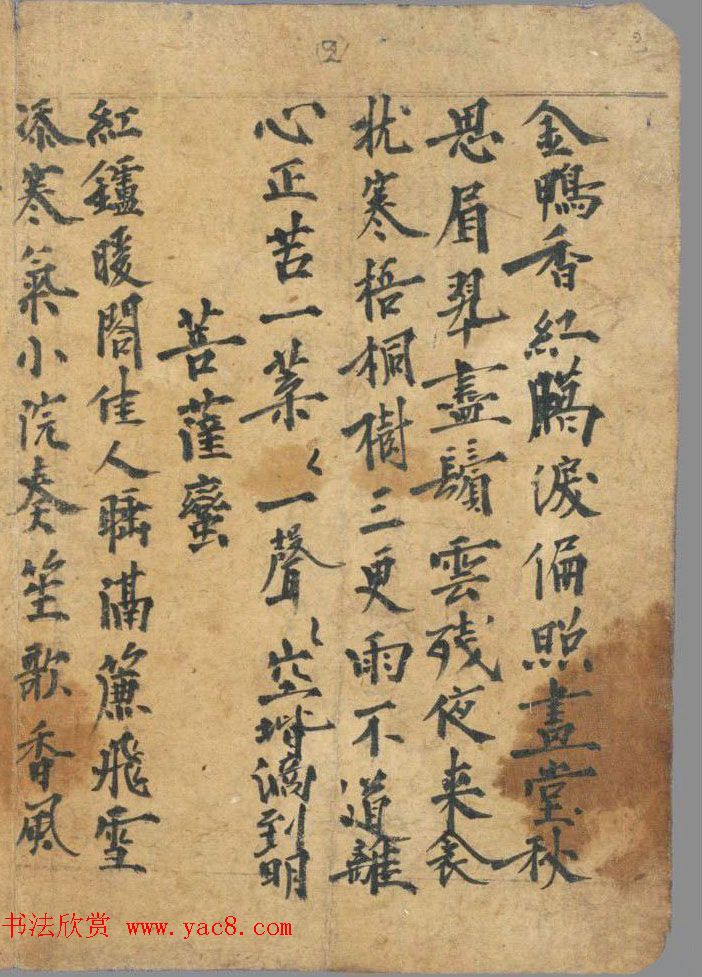 2
金鴨香紅臈淚偏照畫堂秋
思眉翆盡鬢雲残夜来衾
枕寒梧桐樹三更雨不道離
心正苦一葉〻一聲〻空堦滴到明
菩薩蠻
紅鑪暖閣佳人睡隔簾飛雪
添寒氣小院奏笙歌香風
书法欣赏 www.yac8.com